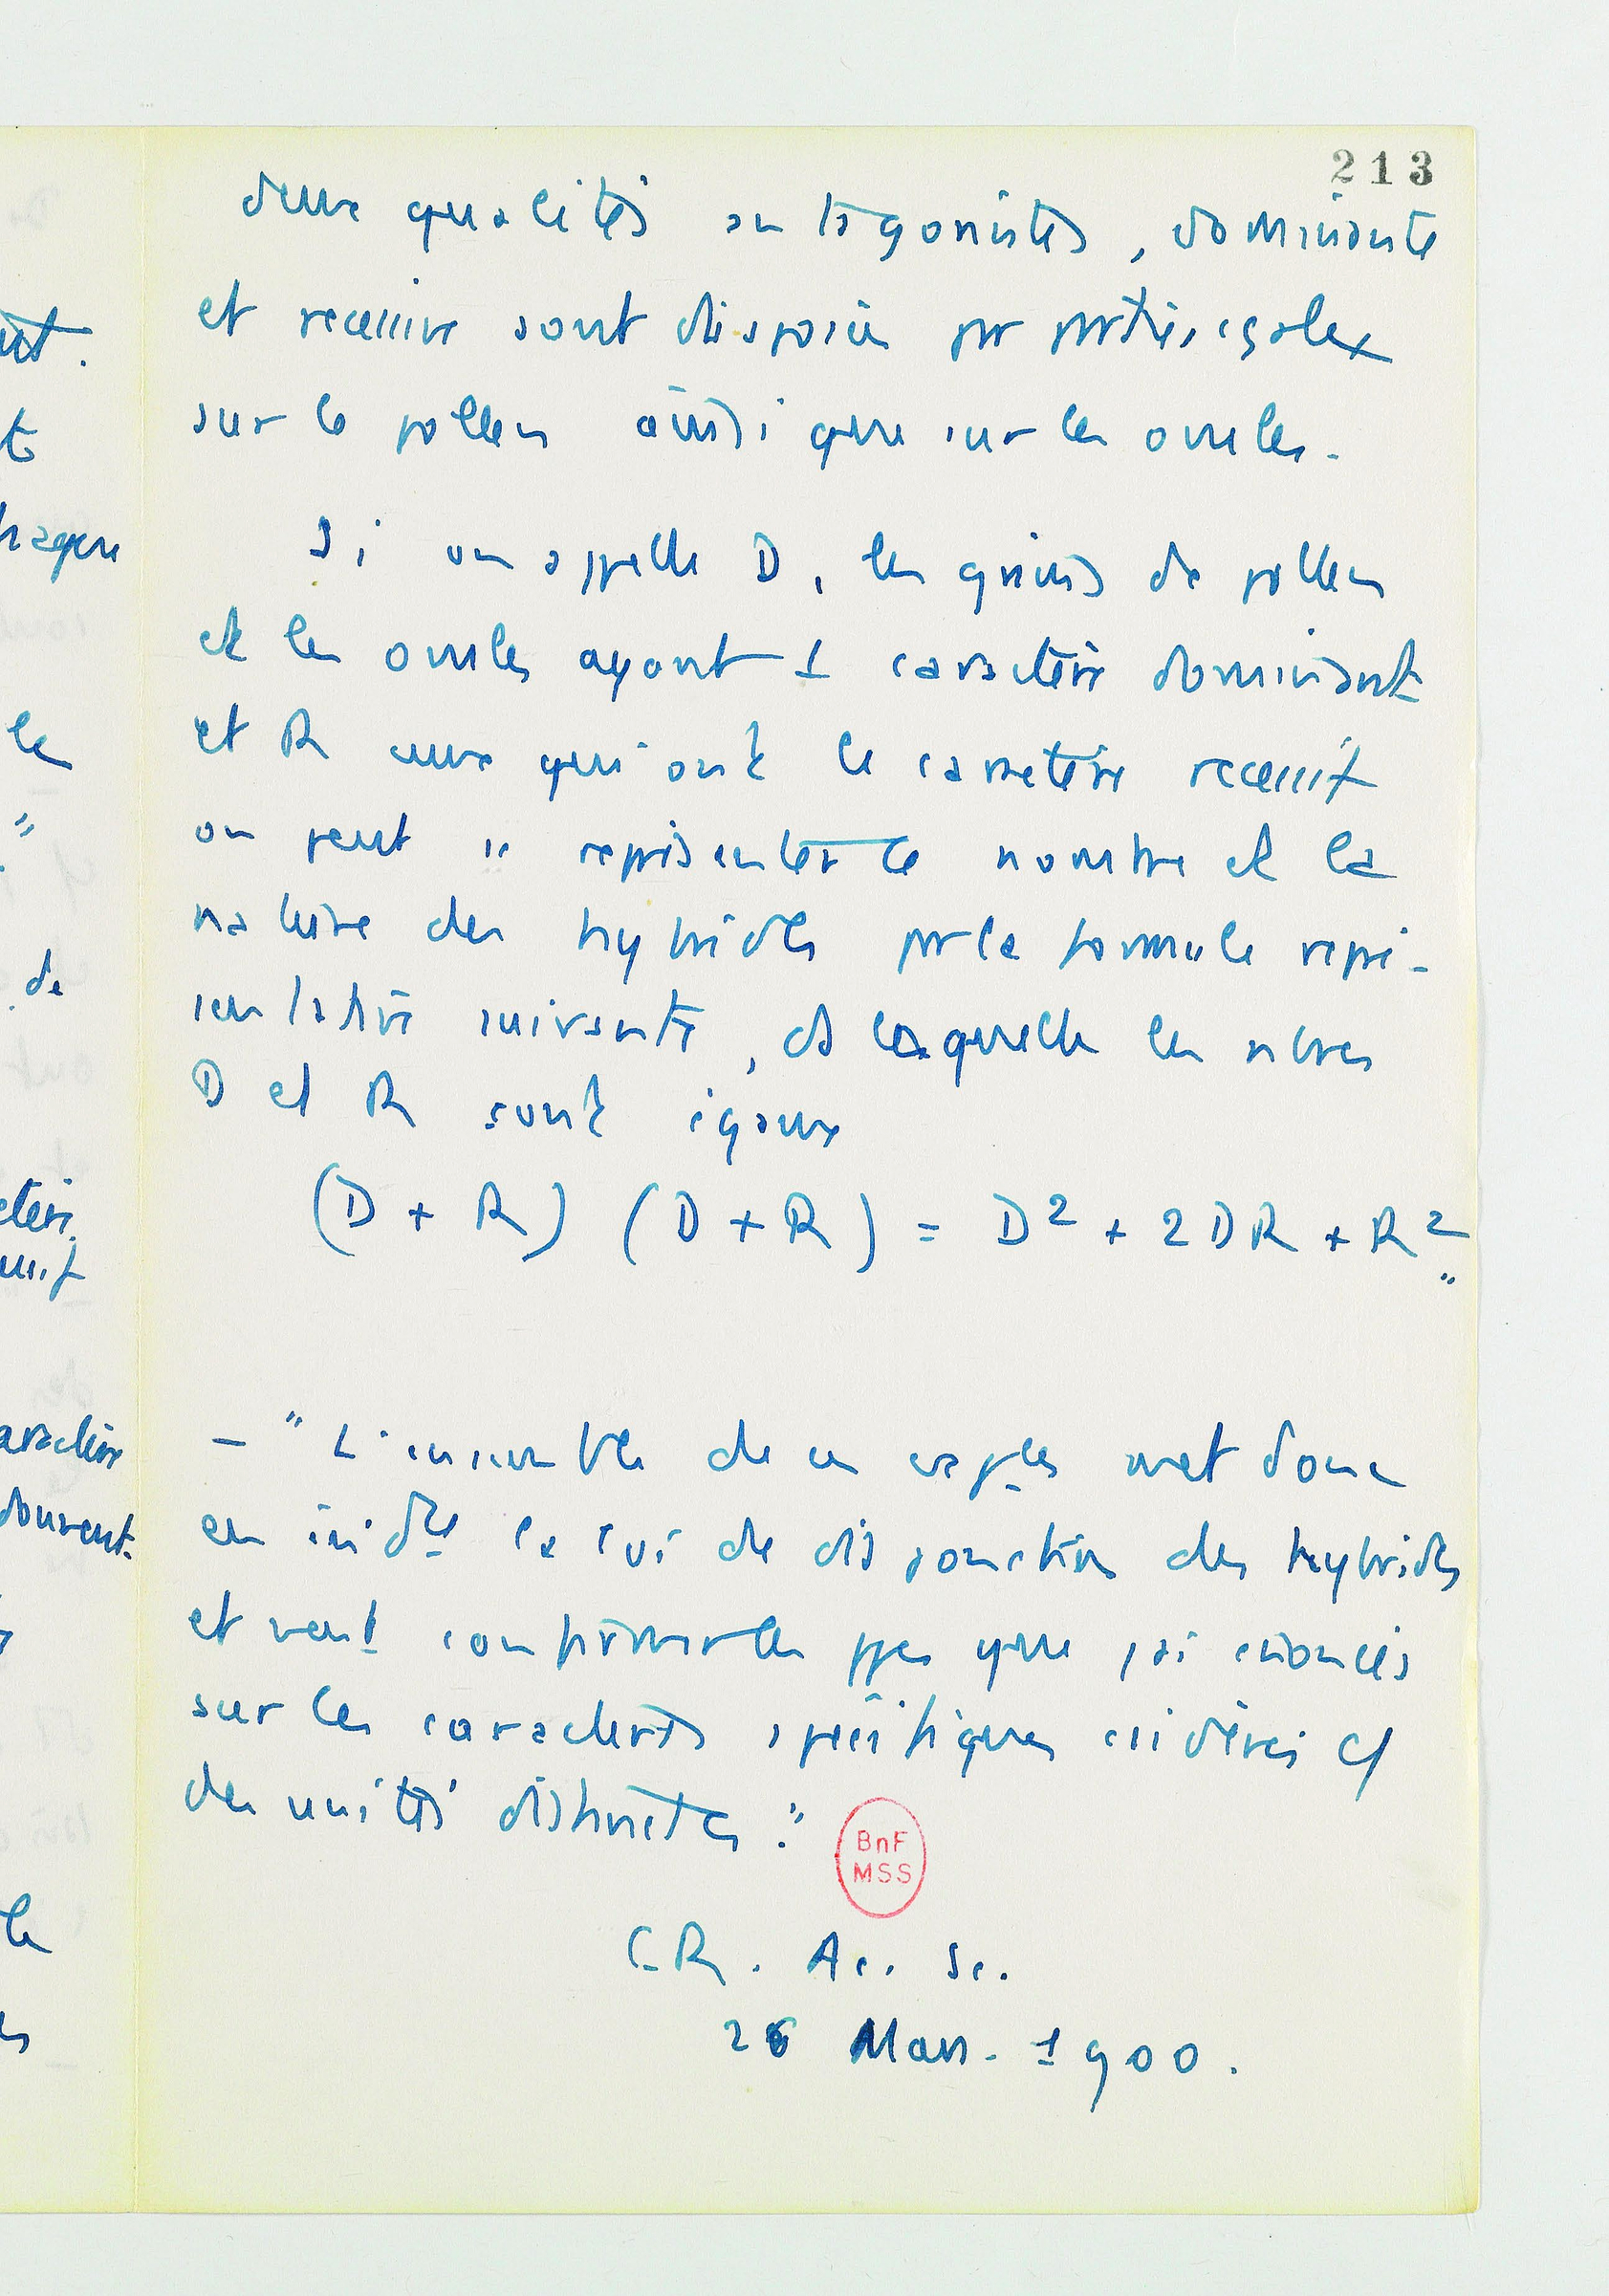 213
deux qualités antagonistes, dominante
et recessive sont disposées par parties égales
sur le pollen ainsi que sur les ovules.
Si on appelle D, les grains de pollen
et les ovules ayant 1 caractère dominant
et R ceux qui ont le caractère recessif
on peut " représenter le nombre et la
nature des hybrides par la formule repré-
sentative suivante, ds laquelle les nbres
D et R sont égaux
(D + R) (D + R) = D² + 2DR + R²
"
– " L'ensemble de ces règles met donc
en évidce la loi de disjonction des hybrides
et vient confirmer les ppes que j'ai énoncés
sur les caractères spécifiques csidérés c/
des unités distinctes."
BnF
MSS
C.R. Ac. Sc.
26 Mars. 1900.